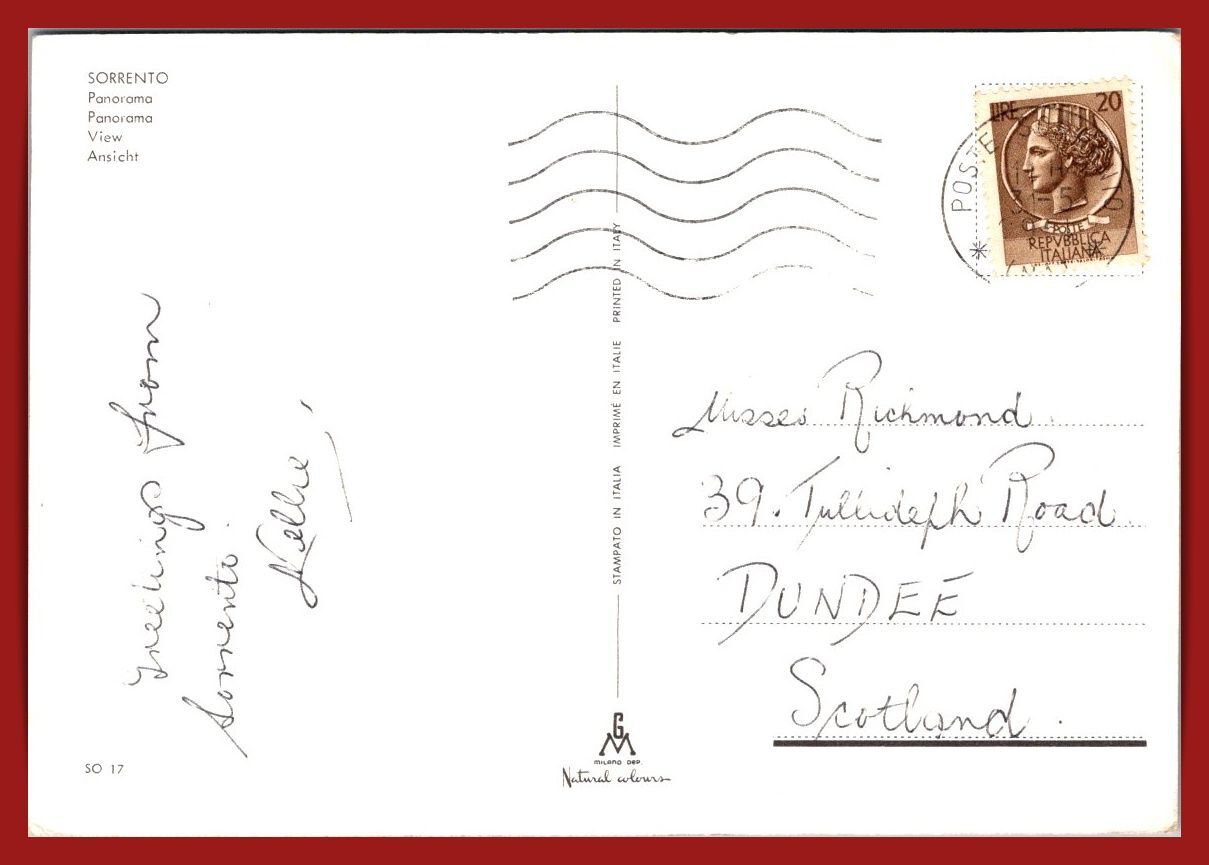 SORRENTO
Panorama
Panorama
View
Ansicht
Greetings from
Sorrento.
Nellie
SO 17
STAMPATO IN ITALIA IMPRIMÉ EN ITALIE PRINTED IN ITALY
GM
MILANO DEP.
Natural colours
LIRE 20
POSTE
REPVBBLICA
ITALIANA
POSTE
Misses Richmond.
39. Tullideph Road.
DUNDEE
Scotland.